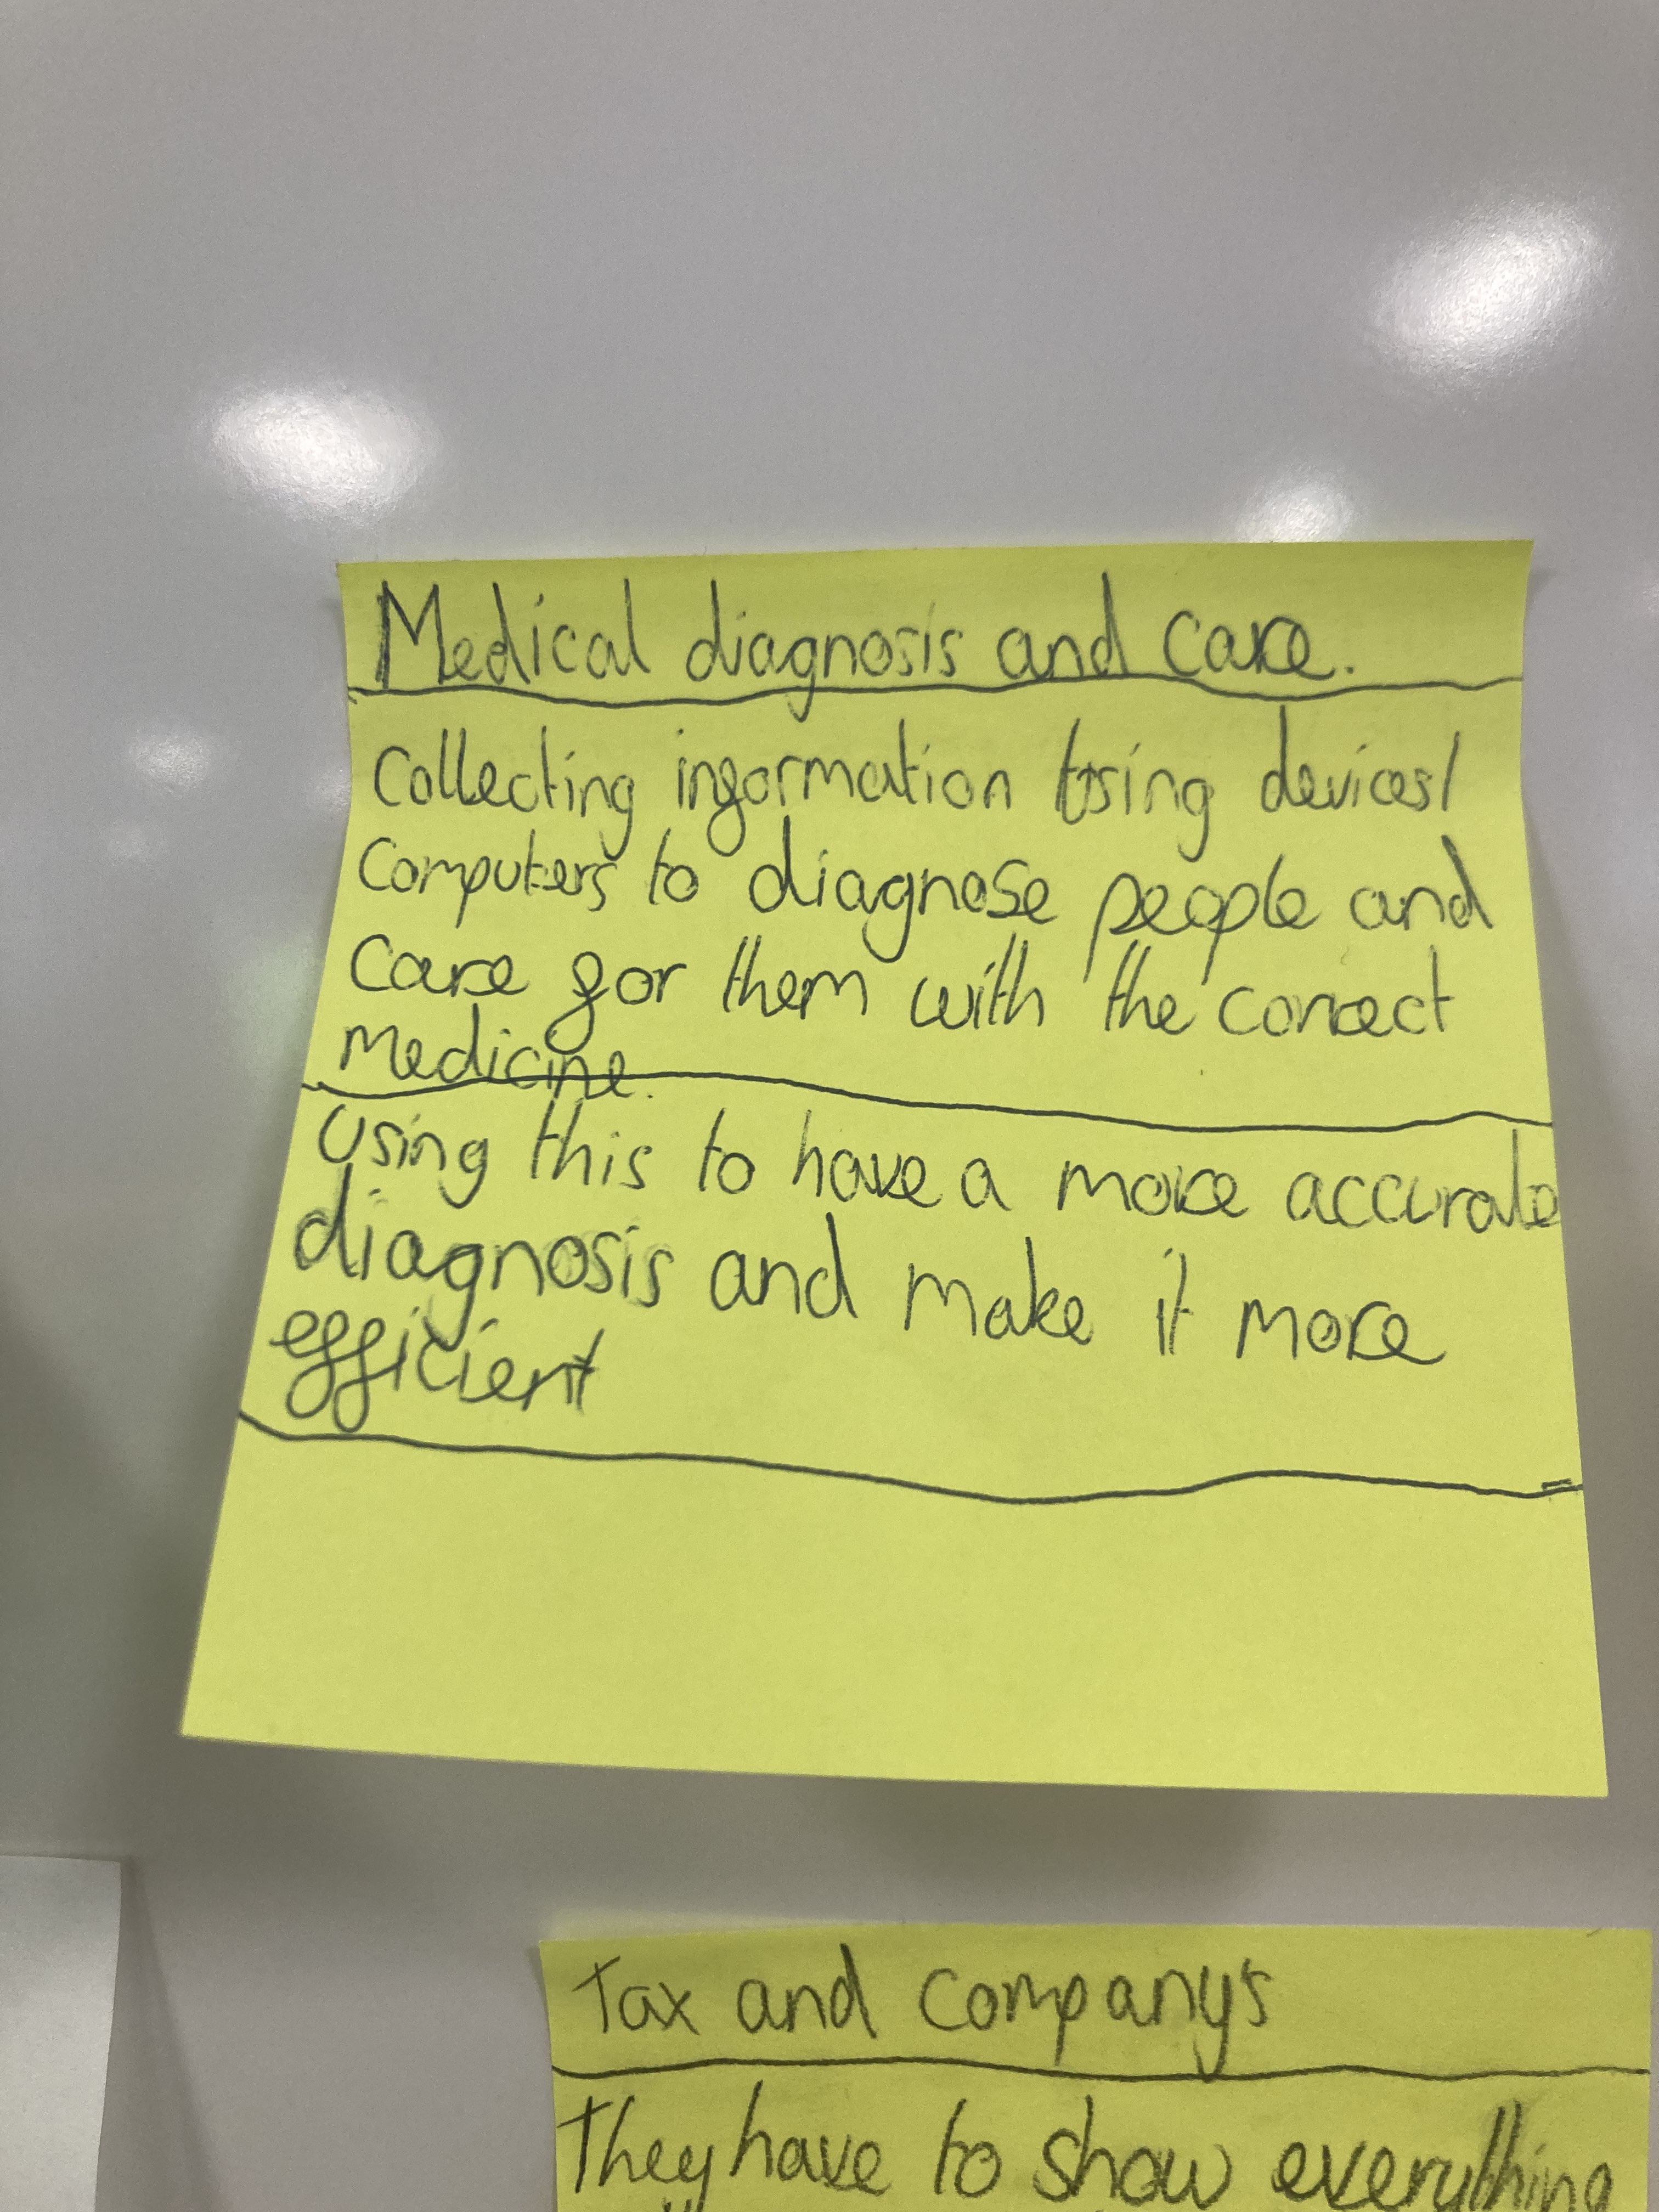 Medical diagnosis and care.
Collecting information using devices/
Computers to diagnose people and
Care for them with the correct
Medicine.
Using this to have a more accurate
diagnosis and make it more
efficient
Tax and companys
They have to show everything